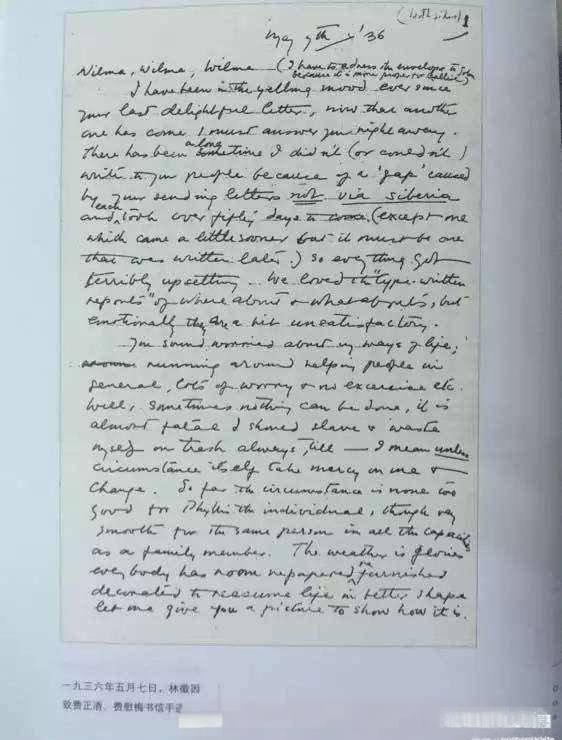 1
May 7th '36
Wilma, Wilma, Wilma (I have to address the envelope to John
because it is more proper or
I have been in the yelling mood ever since
your last delightful letter, now that another
one has come I must answer you right away.
There has been a long sometime I didn't (or couldn't)
write to you people because of a 'gap' caused
by your sending letters not via Siberia
and each took over fifty days to come, (except one
which came a little sooner but it must be one
that was written later.) So everything got
terribly upsetting. We loved the "type-written
reports" of where abouts or what abouts, but
emotionally they are a bit unsatisfactory.
You sound worried about my ways of life,
running around helping people in
general, lots of worry & no excercise etc.
Well, sometimes nothing can be done, it is
almost fatal I should slave & waste
myself on trash always, till — I mean unless
circumstance itself take mercy on me &
change. So far the circumstance is none too
good for Phyllis the individual, though very
smooth for the same person in all the capacities
as a family member. The weather is glorious
everybody has room repapered, refurnished
decorated to reassume life in better shape
let me give you a picture to show how it is.
一九三六年五月七日,林徽因
致费正清、费慰梅书信手迹